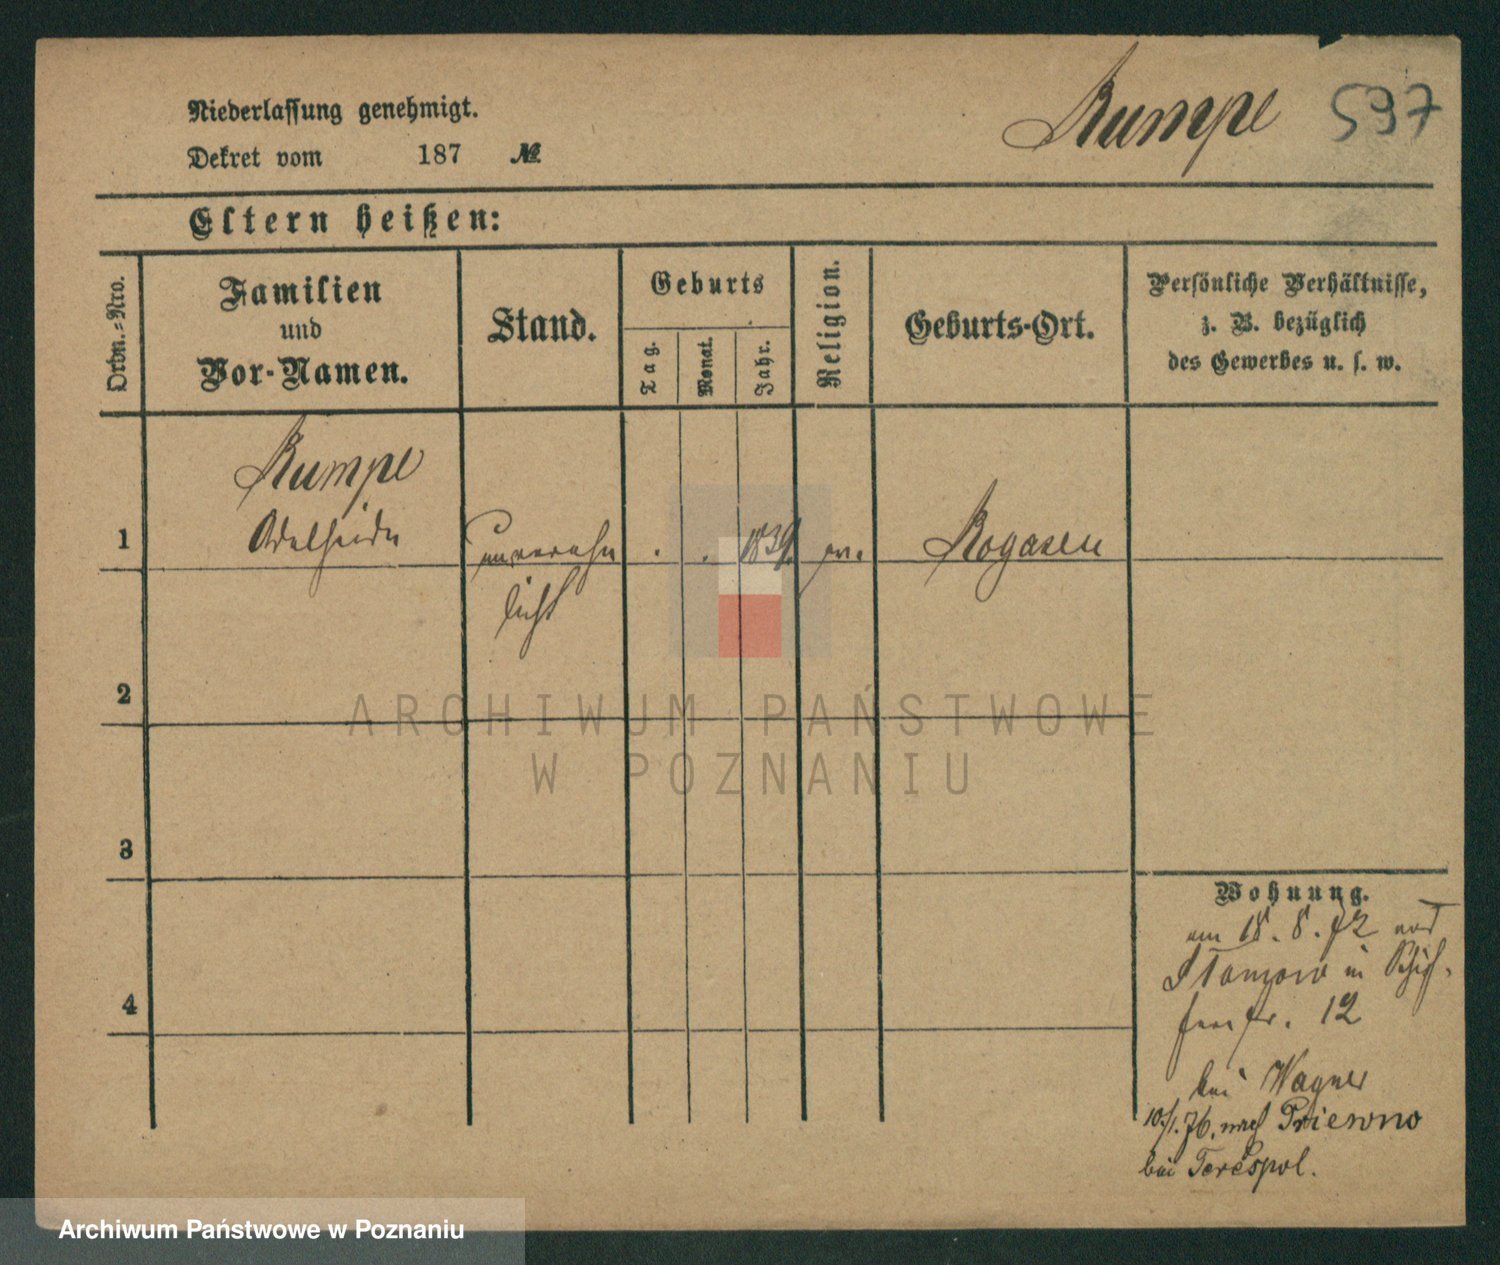 Niederlassung genehmigt.
Dekret vom 187 №
Rumpe
597
Eltern heißen:
Ordn.=Nro.
Familien
und
Vor-Namen.
Stand.
Geburts
Tag.
Monat.
Jahr.
Religion.
Geburts-Ort.
Persönliche Verhältnisse,
z. B. bezüglich
des Gewerbes u. s. w.
1
Rumpe
Adelheide
unvereh
licht
.
.
1839.
ev.
Rogasen
2
3
4
Wohnung.
am 18. 8. 72 aus
in
12
bei Wagner
10/1. 76. nach Priewno
bei Terespol.
ARCHIWUM PAŃSTWOWE
W POZNANIU
Archiwum Państwowe w Poznaniu